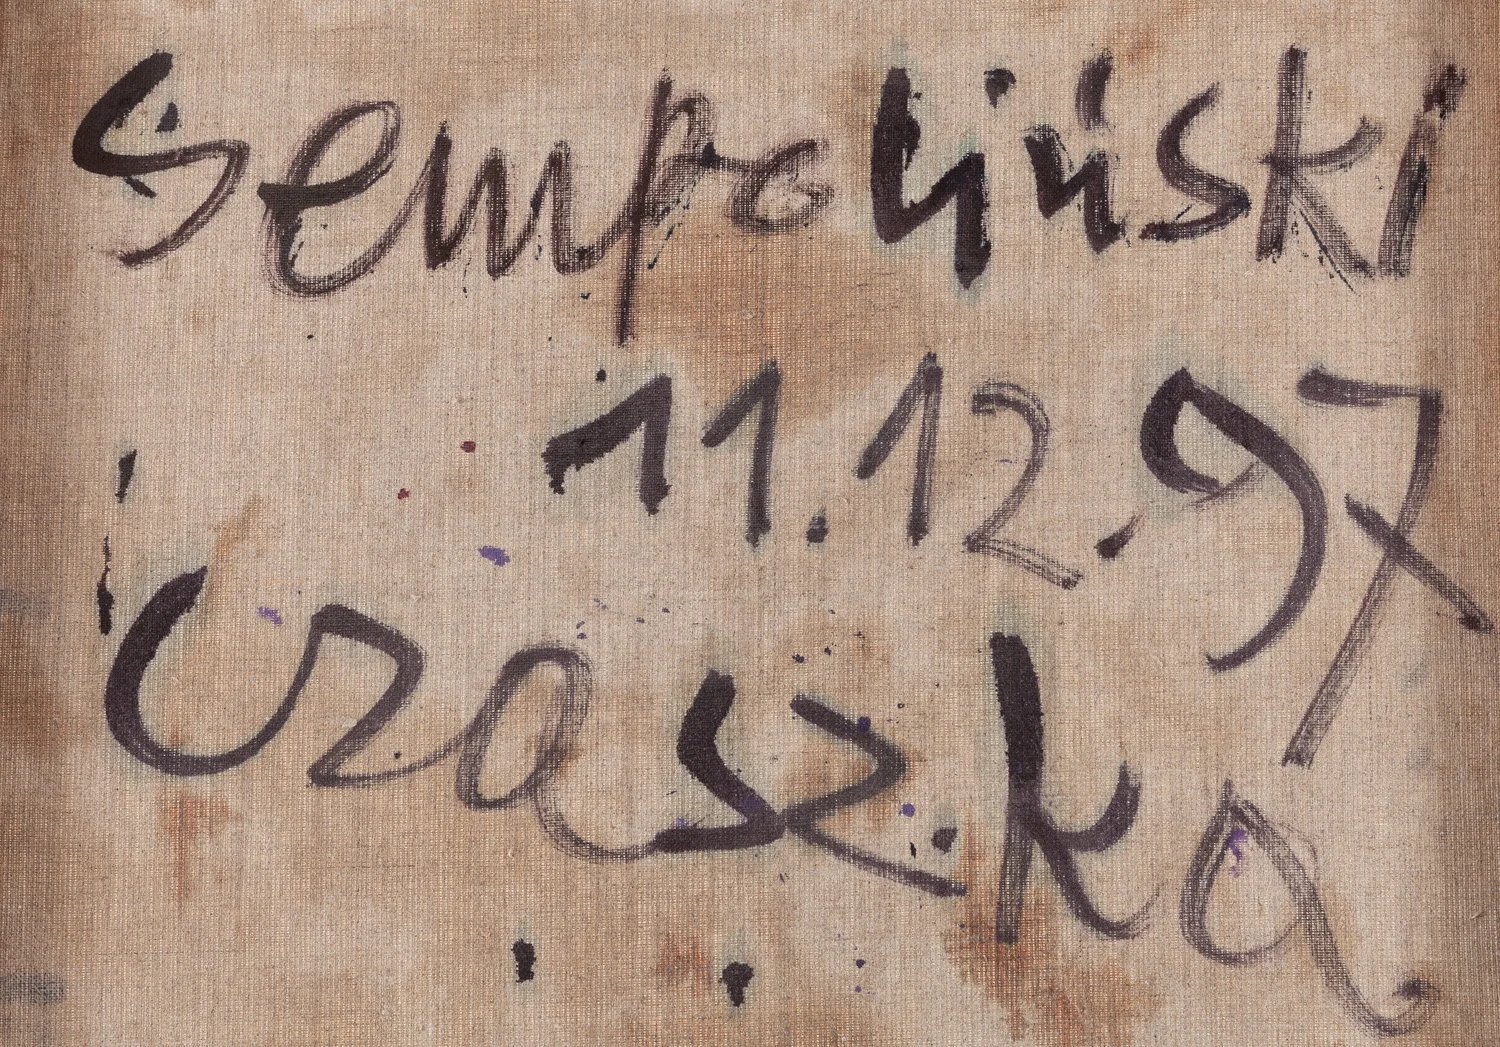 Sempoliński
11.12.97
Czaszka